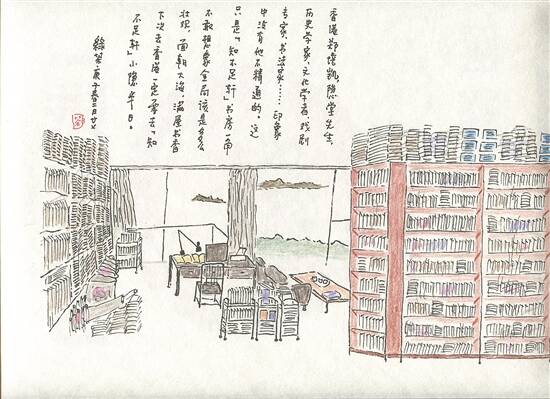 香港郑培凯,隐堂先生,
历史学家、文化学者、戏剧
专家、书法家……印象
中没有他不精通的。这
只是「知不足轩」书房一角
不敢想象全局该是多么
壮观,面朝大海,满屋书香
下次去香港一定要去「知
不足轩」小隐半日。
绿茶庚子春